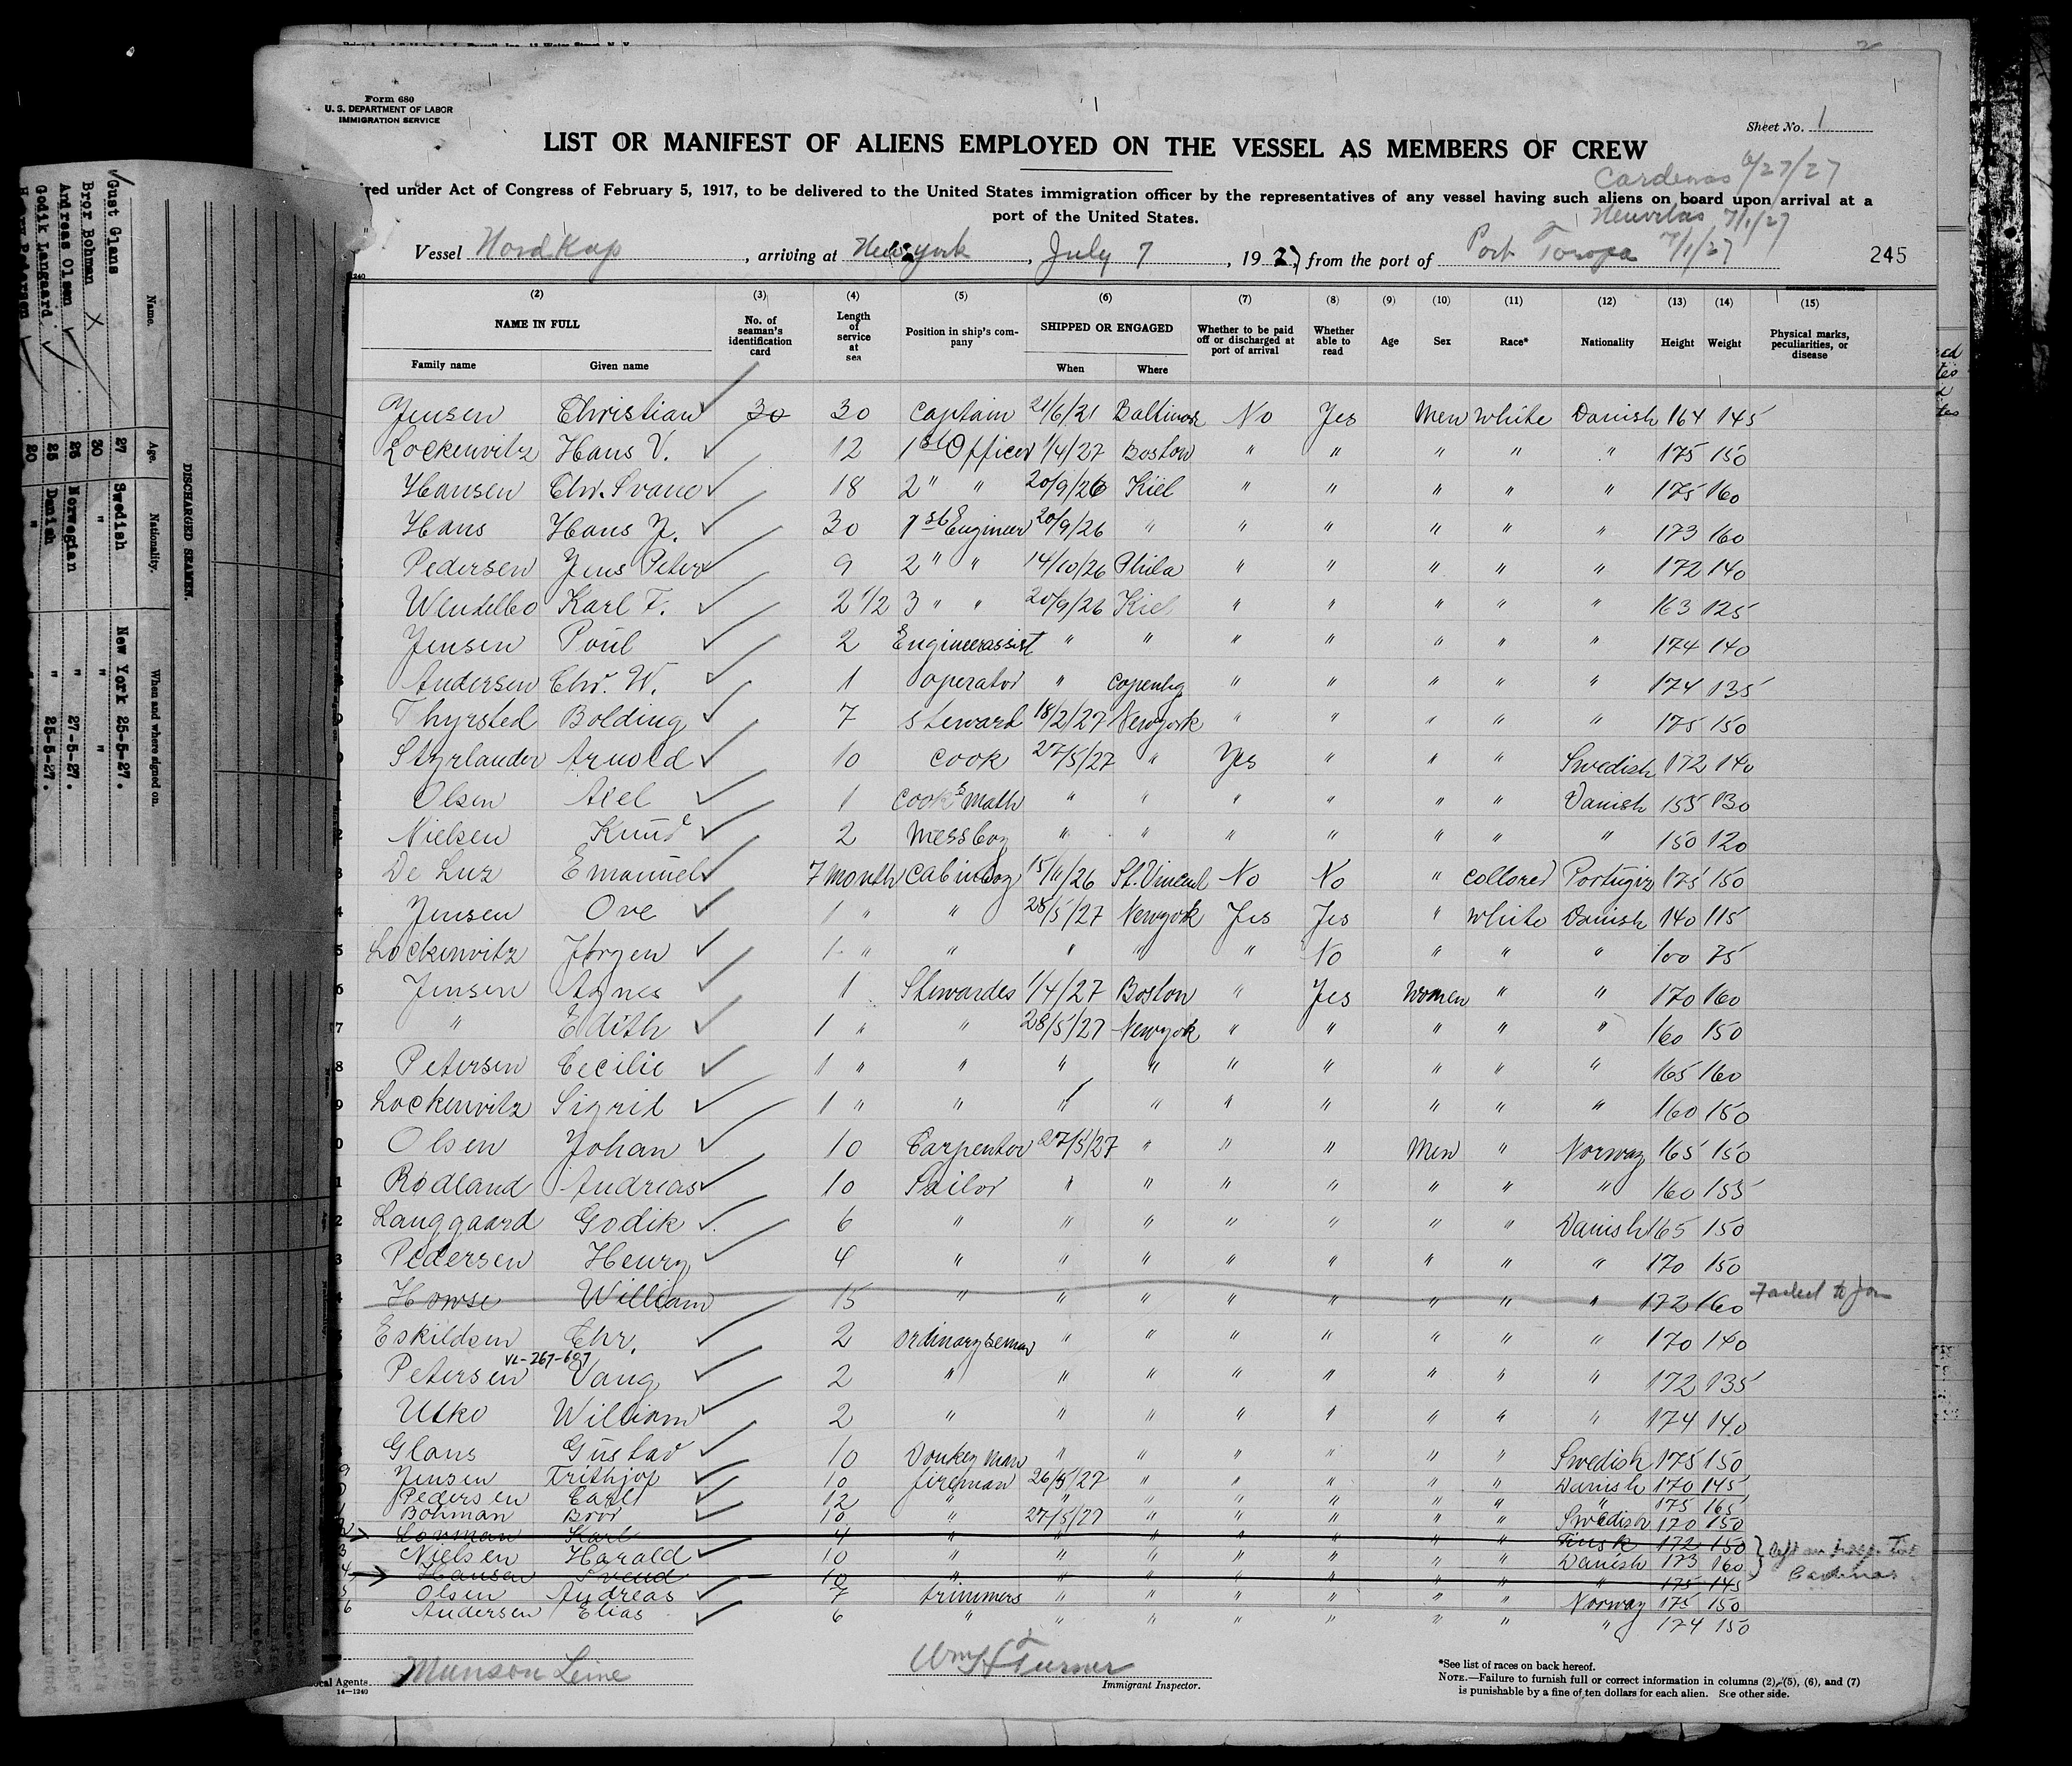 Form 680
U. S. DEPARTMENT OF LABOR
IMMIGRATION SERVICE
Sheet No. 1
LIST OR MANIFEST OF ALIENS EMPLOYED ON THE VESSEL AS MEMBERS OF CREW
Cardenas 6/27/27
red under Act of Congress of February 5, 1917, to be delivered to the United States immigration officer by the representatives of any vessel having such aliens on board upon arrival at a
port of the United States.
7/1/27
Vessel Nordkap, arriving at New york, July 7, 1927, from the port of Port 7/1/27
245
(2) (3) (4) (5) (6) (7) (8) (9) (10) (11) (12) (13) (14) (15)
NAME IN FULL No. of seaman's identification card Length of service at sea Position in ship's company SHIPPED OR ENGAGED Whether to be paid off or discharged at port of arrival Whether able to read Age Sex Race* Nationality Height Weight Physical marks, peculiarities, or disease
Family name Given name When Where
Jensen Christian 30 30 Captain 21/6/21 Baltimor No Yes Men White Danish 164 145
Lockenvitz Hans V. 12 1st Officer 1/4/27 Boston " " " " " 175 150
Hansen Chr. 18 2" " 20/9/26 Kiel " " " " " 175 160
Hans Hans 30 1st Engineer 20/9/26 " " " " " " 173 160
Pedersen Jens Peter 9 2" " 14/10/26 Phila " " " " " 172 140
Wendelbo Karl F. 2 1/2 3 " " 20/9/26 Kiel " " " " " 163 125
Jensen Poul 2 Engineerassist " " " " " " " 174 140
Andersen Chr. W. 1 operator " Copenhg " " " " " 174 135
Thyrsted Bolding 7 steward 18/2/27 Newyork " " " " " 175 150
Styrlander Arnold 10 cook 27/5/27 " Yes " " " Swedish 172 140
Olsen Axel 1 cooks math " " " " " " Danish 155 130
Nielsen Knud 2 Messboy " " " " " " " 150 120
De Luz Emanuel 7 month cabinboy 15/11/26 St. Vincent No No " collored Portugiz 175 150
Jensen Ove 1 " " 28/5/27 Newyork Yes Yes " White Danish 140 115
Lockenvitz Jørgen 1 " " " " " No " " " 100 75
Jensen Agnes 1 Stewardes 1/4/27 Boston " Yes Women " " 170 160
" Edith 1 " " 28/5/27 Newyok " " " " " 160 150
Petersen Cecilie 1 " " " " " " " " " 165 160
Lockenvitz Sigrid 1 " " " " " " " " " 160 150
Olsen Johan 10 Carpentor 27/5/27 " " " Men " Norway 165 150
Rödland Andreas 10 Sailor " " " " " " " 160 155
Langgaard Godik 6 " " " " " " " Danish 165 150
Pedersen Henry 4 " " " " " " " " 170 150
Howse William 15 " " " " " " " " 172 160 Failed to Join
Eskildsen Chr. 2 ordinary seman " " " " " " " 170 140
VL-267-607
Petersen Vang 2 " " " " " " " " 172 135
Utko William 2 " " " " " " " " 174 140
Glans Gustav 10 Donkey man " " " " " " Swedish 175 150
Jensen Frithjof 10 fireman 26/5/27 " " " " " Danish 170 145
Pedersen Carl 12 " " " " " " " " 175 165
Bohman Bror 10 " 27/5/27 " " " " " Swedish 170 150
Karl 4 " " " " " " " Finsk 172 150
Nielsen Harald 10 " " " " " " " Danish 173 160
Hansen Svend 10 " " " " " " " " 175 145
left in Hosp. Cardenas
Olsen Andreas 7 trimmers " " " " " " Norway 175 150
Andersen Elias 6 " " " " " " " " 174 150
Munson Leine
Wm H Turner
Local Agents
14—1240
Immigrant Inspector.
*See list of races on back hereof.
NOTE.—Failure to furnish full or correct information in columns (2), (5), (6), and (7)
is punishable by a fine of ten dollars for each alien. See other side.
DISCHARGED SEAMEN.
Name. Age. Nationality. When and where signed on.
Gust Glans 27 Swedish New York 25-5-27.
Bror Bohman 30 " " "
Andreas Olsen 26 Norwegian " 27-5-27.
Godik Langaard 25 Danish " 25-5-27.